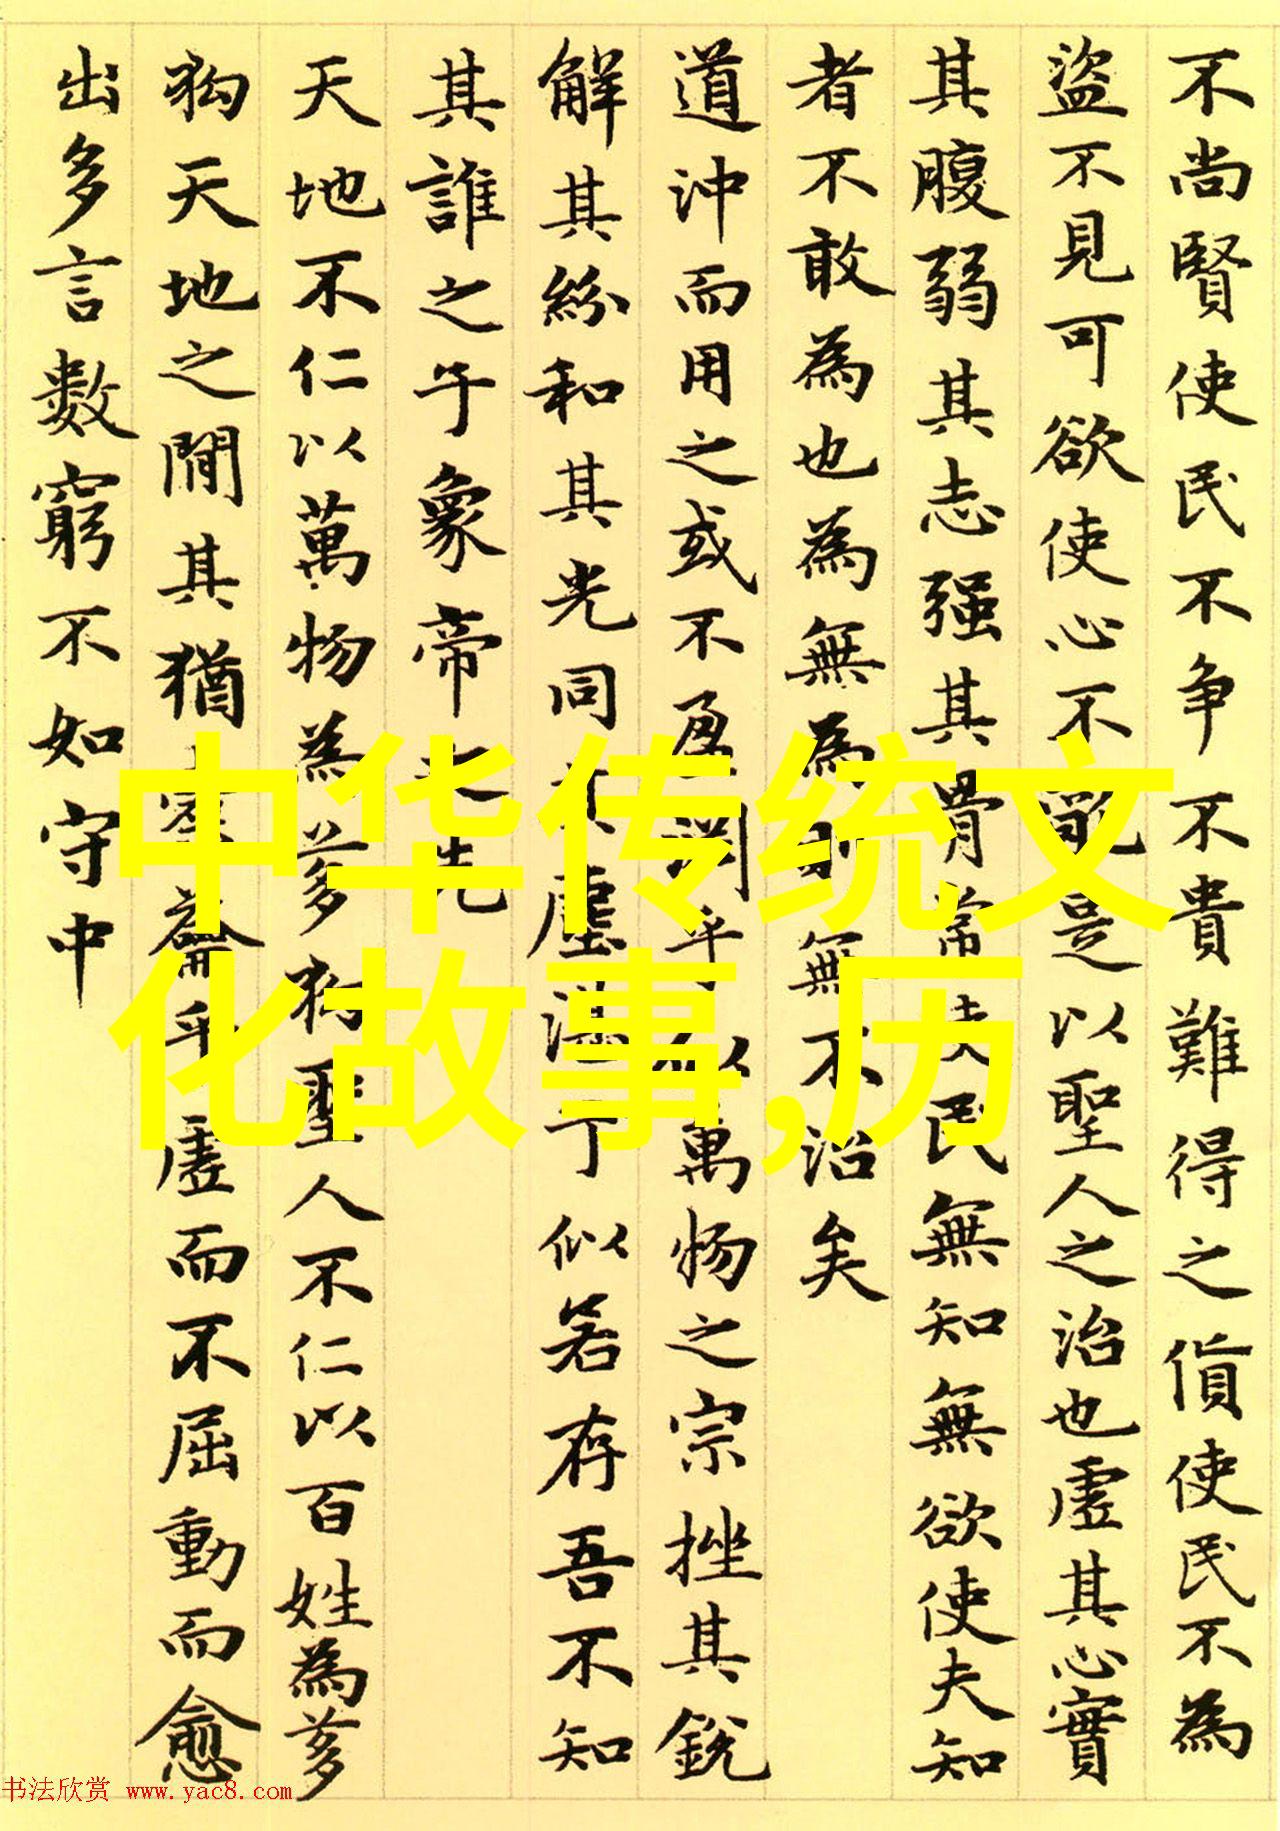 不尚賢使民不争不貴難得之貨使民不為
盜不見可欲使心不亂是以聖人之治也虛其心實
其腹弱其志强其骨常使民無知無欲使夫知
者不敢為也為無為則無不治矣
道沖而用之或不盈淵乎似萬物之宗挫其銳
解其紛和其光同其塵湛兮似若存吾不知
其誰之子象帝之先
天地不仁以萬物為芻狗聖人不仁以百姓為芻
狗天地之間其猶橐籥乎虛而不屈動而愈
出多言數窮不如守中
中华传统文
化故事,历
书法欣赏 www.yac8.com